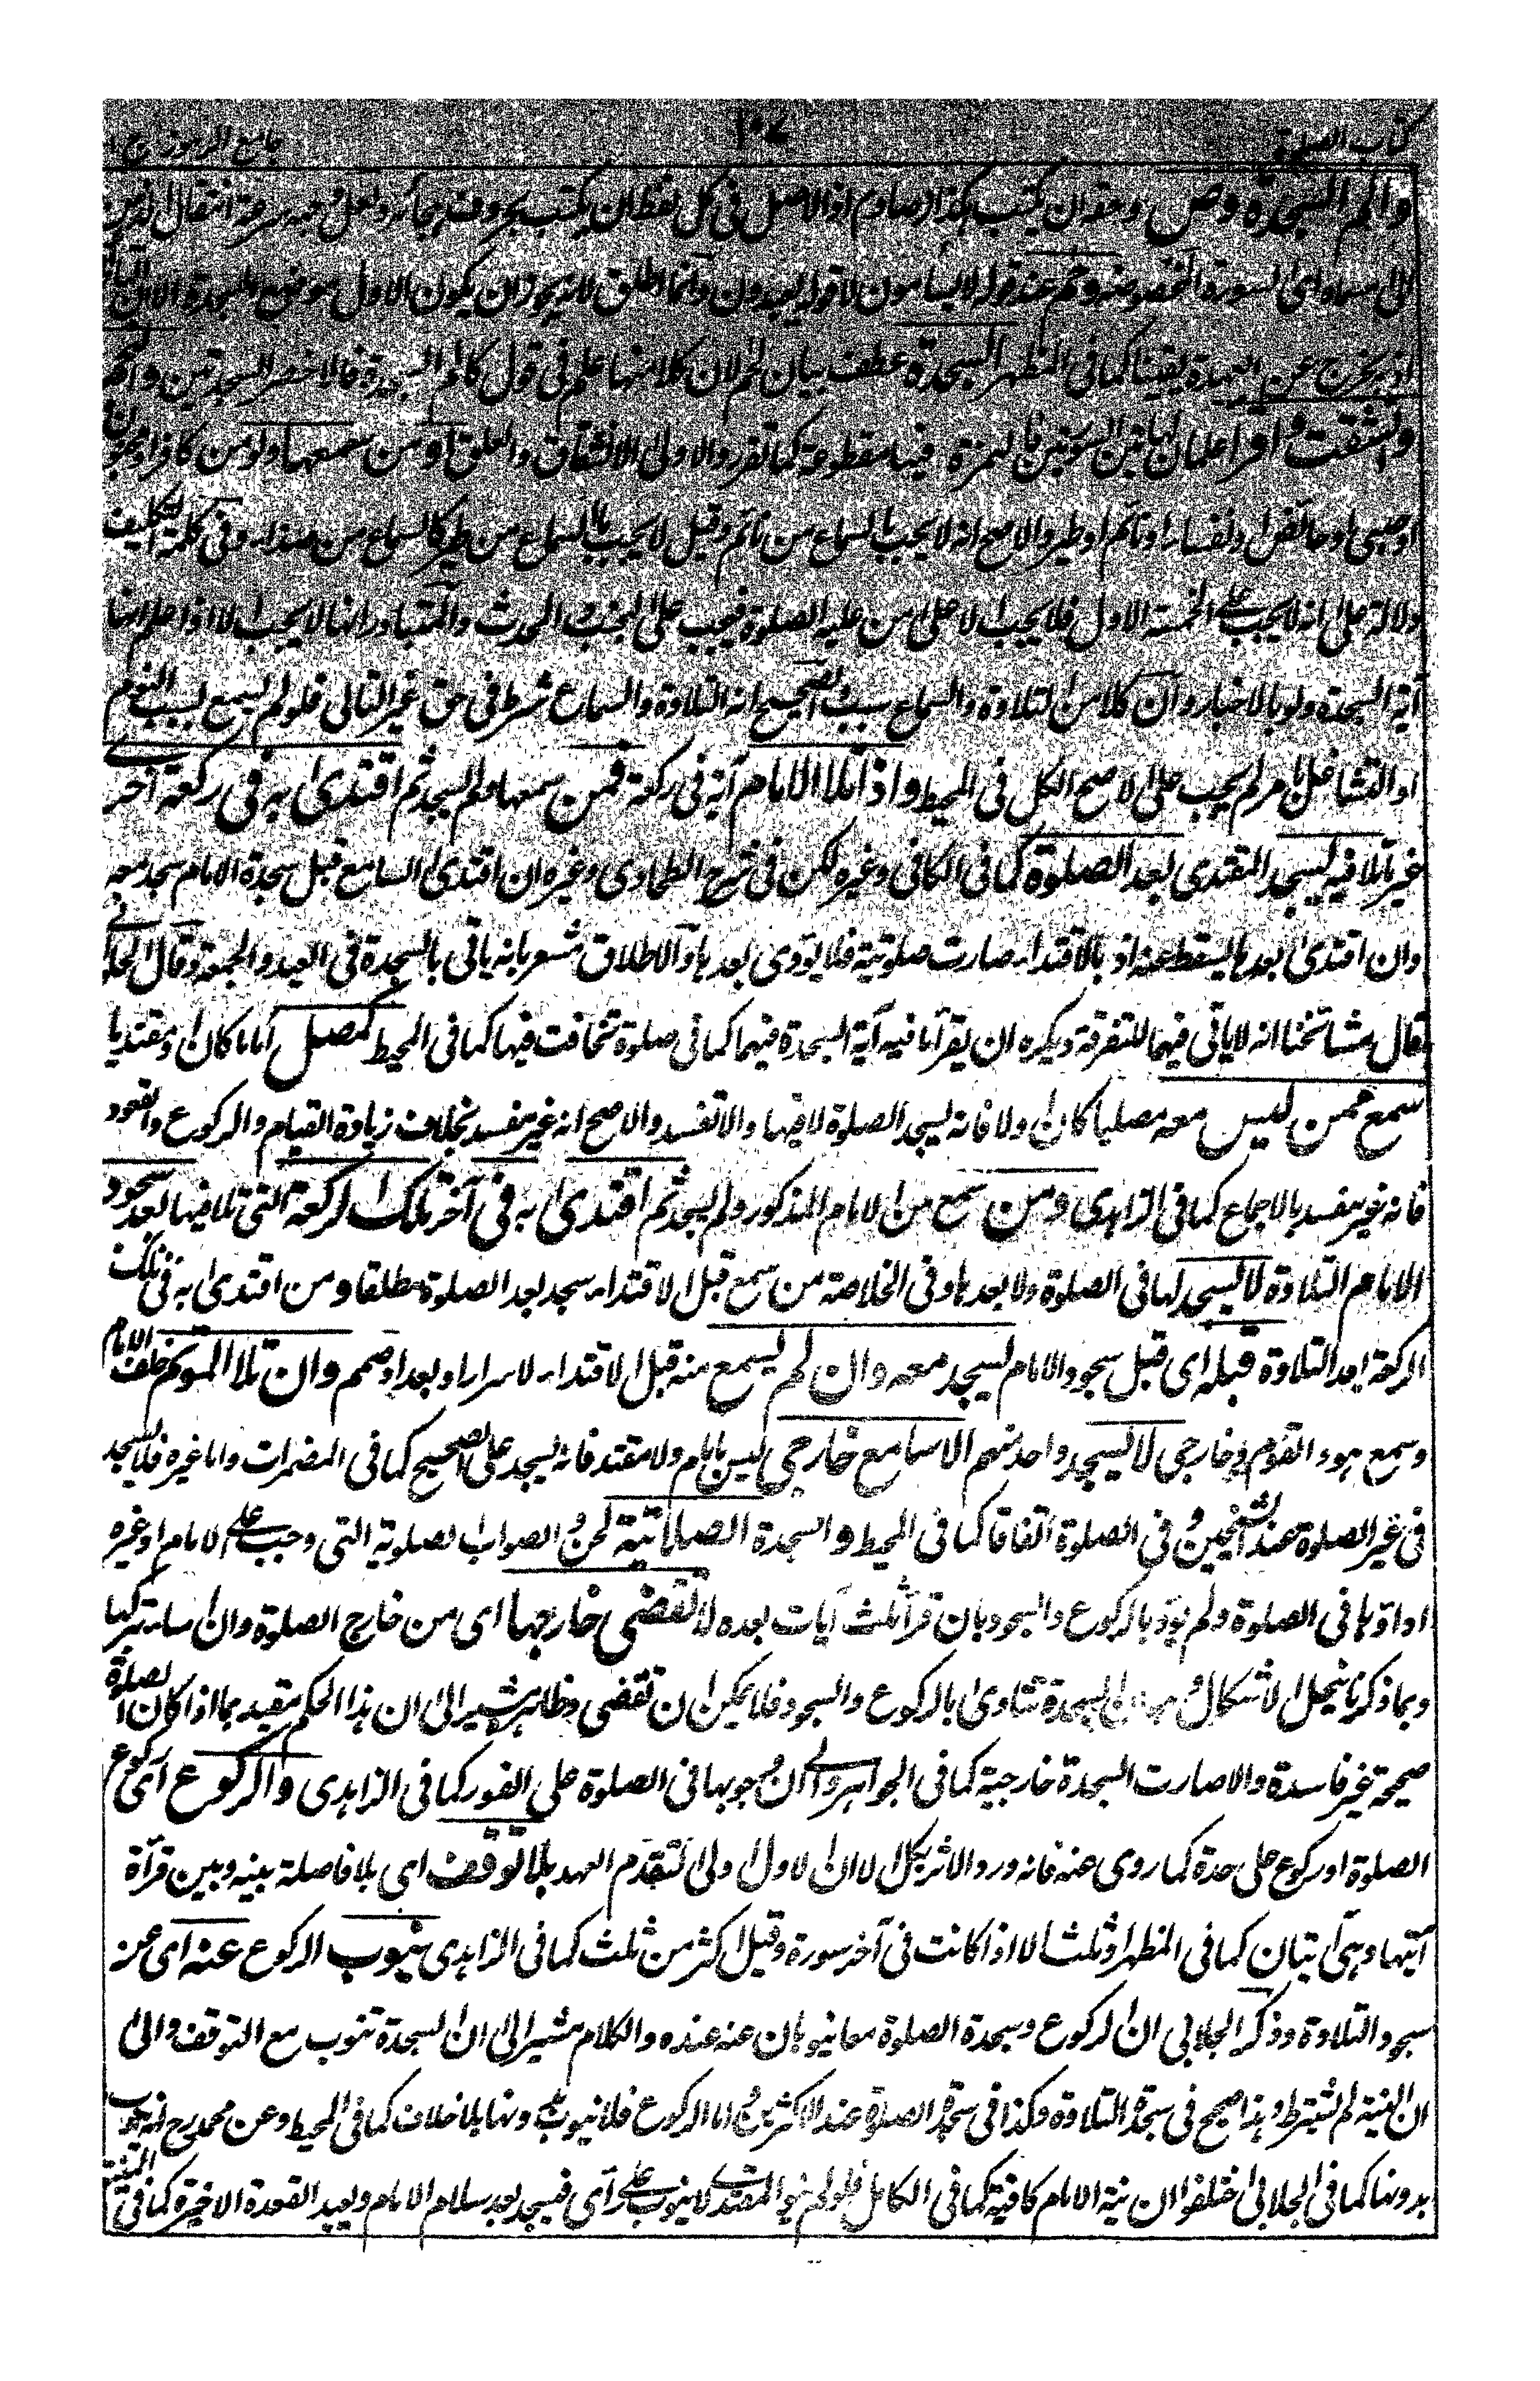 كتاب الصلوة
جامع الرموز ج ١
والم السجدة وص وحقه ان يكتب كذا صاد اذ الاصل فى كل لفظ ان يكتب بحروف هجائه ولعل وجهه سرعة انتقال الذهن
الى مسماه اى السورة المخصوصة وحم عند قوله لا يسأمون لا قوله يعبدون وانما اطلق لانه يجوز ان يكون الاول موضع السجدة الا ان
اذ يخرج عن العهدة يقينا كما فى المظهر السجدة عطف بيان لحم لان كلا منها علم فى قول كالم السجدة فالاخصر السجدتين والنجم
وانشقت واقرأ علمان لهاتين السورتين فالهمزة فيها مقطوعة كما تقرر والاولى الانشقاق والعلق او من سمعها ولو من كافر او مجنون
او صبى او حائض او نفساء او نائم او طير والاصح انه لا يجب بالسماع من نائم وقيل لا يجب بالسماع من طير كالسماع من صداء وفى كلمة التكليف
دلالة على انه لا يجب على الخمسة الاول فلا يجب الا على من عليه الصلوة فيجب على الجنب والمحدث والمتبادر انها لا يجب الا اذا علم انها
آية السجدة ولو بالاخبار وان كلا من التلاوة والسماع سبب والصحيح انه التلاوة والسماع شرط فى حق غير التالى فلو لم يسمع لسبب النوم
او التشاغل بامر لم يجب على الاصح الكل فى المحيط واذا تلا الامام آية فى ركعة فمن سمعها ولم يسجد ثم اقتدى به فى ركعة اخرى
غير ما تلا فيه يسجد المقتدى بعد الصلوة كما فى الكافى وغيره لكن فى شرح الطحاوى وغيره ان اقتدى السامع قبل سجدة الامام سجد معه
وان اقتدى بعدها يسقط عنه اذ بالاقتداء صارت صلوتية فلا يؤدى بعدها والاطلاق مشعر بانه ياتى بالسجدة فى العيد والجمعة وقال الحلو
قال مشائخنا انه لا ياتى فيهما للتفرقة ويكره ان يقرأ ما فيه آية السجدة فيهما كما فى صلوة تخافت فيها كما فى المحيط كمصل اماما كان او مقتديا
سمع ممن ليس معه مصليا كان اولا فانه يسجد الصلوة لا فيها والا تفسد والاصح انه غير مفسد بخلاف زيادة القيام والركوع والقعود
فانه غير مفسد بالاجماع كما فى الزاهدى ومن سمع من الامام المذكور ولم يسجد ثم اقتدى به فى آخر تلك الركعة التى تلا فيها بعد سجود
الامام التلاوة لا يسجد لها فى الصلوة ولا بعدها وفى الخلاصة من سمع قبل الاقتداء سجد بعد الصلوة مطلقا ومن اقتدى به فى تلك
الركعة بعد التلاوة قبله اى قبل سجود الامام يسجد معه وان لم يسمع منه قبل الاقتداء لاسرار او بعد او صمم وان تلا المؤتم خلف الامام
وسمع هو والقوم وخارجى لا يسجد واحد منهم الا سامع خارجى ليس بامام ولا مقتد فانه يسجد على الصحيح كما فى المضمرات واما غيره فلا يسجد
فى غير الصلوة عند الشيخين وفى الصلوة اتفاقا كما فى المحيط والسجدة الصلاتية لحن والصواب الصلوية التى وجب على الامام او غيره
اداؤها فى الصلوة ولم يؤد بالركوع والسجود بان قرأ ثلث آيات بعده لا تقضى خارجها اى من خارج الصلوة وان اساء بتركها
وبما ذكرنا ينحل الاشكال وهو ان السجدة تتاوى بالركوع والسجود فلا يمكن ان تقضى وظاهره مشير الى ان هذا الحكم مقيد بما اذا كان الصلوة
صحيحة غير فاسدة والا صارت السجدة خارجية كما فى الجواهر والى ان وجوبها فى الصلوة على الفور كما فى الزاهدى والركوع اى ركوع
الصلوة او ركوع على حدة كما روى عنه فانه ورد الاثر بكل الا ان الاول اولى لتقدم العهد بلا توقف اى بلا فاصلة بينه وبين قرآة
آيتها وهى آيتان كما فى المظهر او ثلث الا اذا كانت فى آخر سورة وقيل اكثر من ثلث كما فى الزاهدى ينوب الركوع عنه اى عن
سجود التلاوة وذكر الجلابى ان الركوع وسجدة الصلوة معا ينوبان عنه عنده والكلام مشير الى ان السجدة تنوب مع التوقف والى
ان النية لم تشترط وهذا صحيح فى سجدة التلاوة وكذا فى سجدة الصلوة عند الاكثرين واما الركوع فلا ينوب بدونها بلا خلاف كما فى المحيط وعن محمد رح انه ينوب
بدونها كما فى الجلابى اختلفوا ان نية الامام كافية كما فى الكامل فلو لم ينو المقتدى لا ينوب على رأى فيسجد بعد سلام الامام ويعيد القعدة الاخيرة كما فى المنية